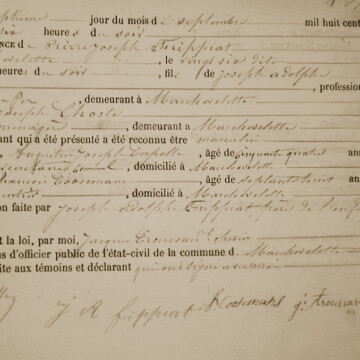 jour du mois de septembre mil huit cent
six heures du soir
NCE de Pierre Joseph Frippiat
Marchovelette, le vingt six dito
heures du soir, fils de Joseph Adolphe
, profession
, demeurant à Marchovelette
Joseph Lhoste
ménagère, demeurant à Marchovelette
ant qui a été présenté a été reconnu être masculin
Augustin Joseph Capelle, âgé de cinquante quatre ans
secrétaire communal, domicilié à Marchovelette
François Koosemans, âgé de septante huit ans
, domicilié à Marchovelette
on faite par Joseph Adolphe Frippiat père de l'enf
t la loi, par moi, Jacques
s d'officier public de l'état-civil de la commune de Marchovelette
ite aux témoins et déclarant qui ont signé avec moi
J A frippiat Koosemans j. troussar